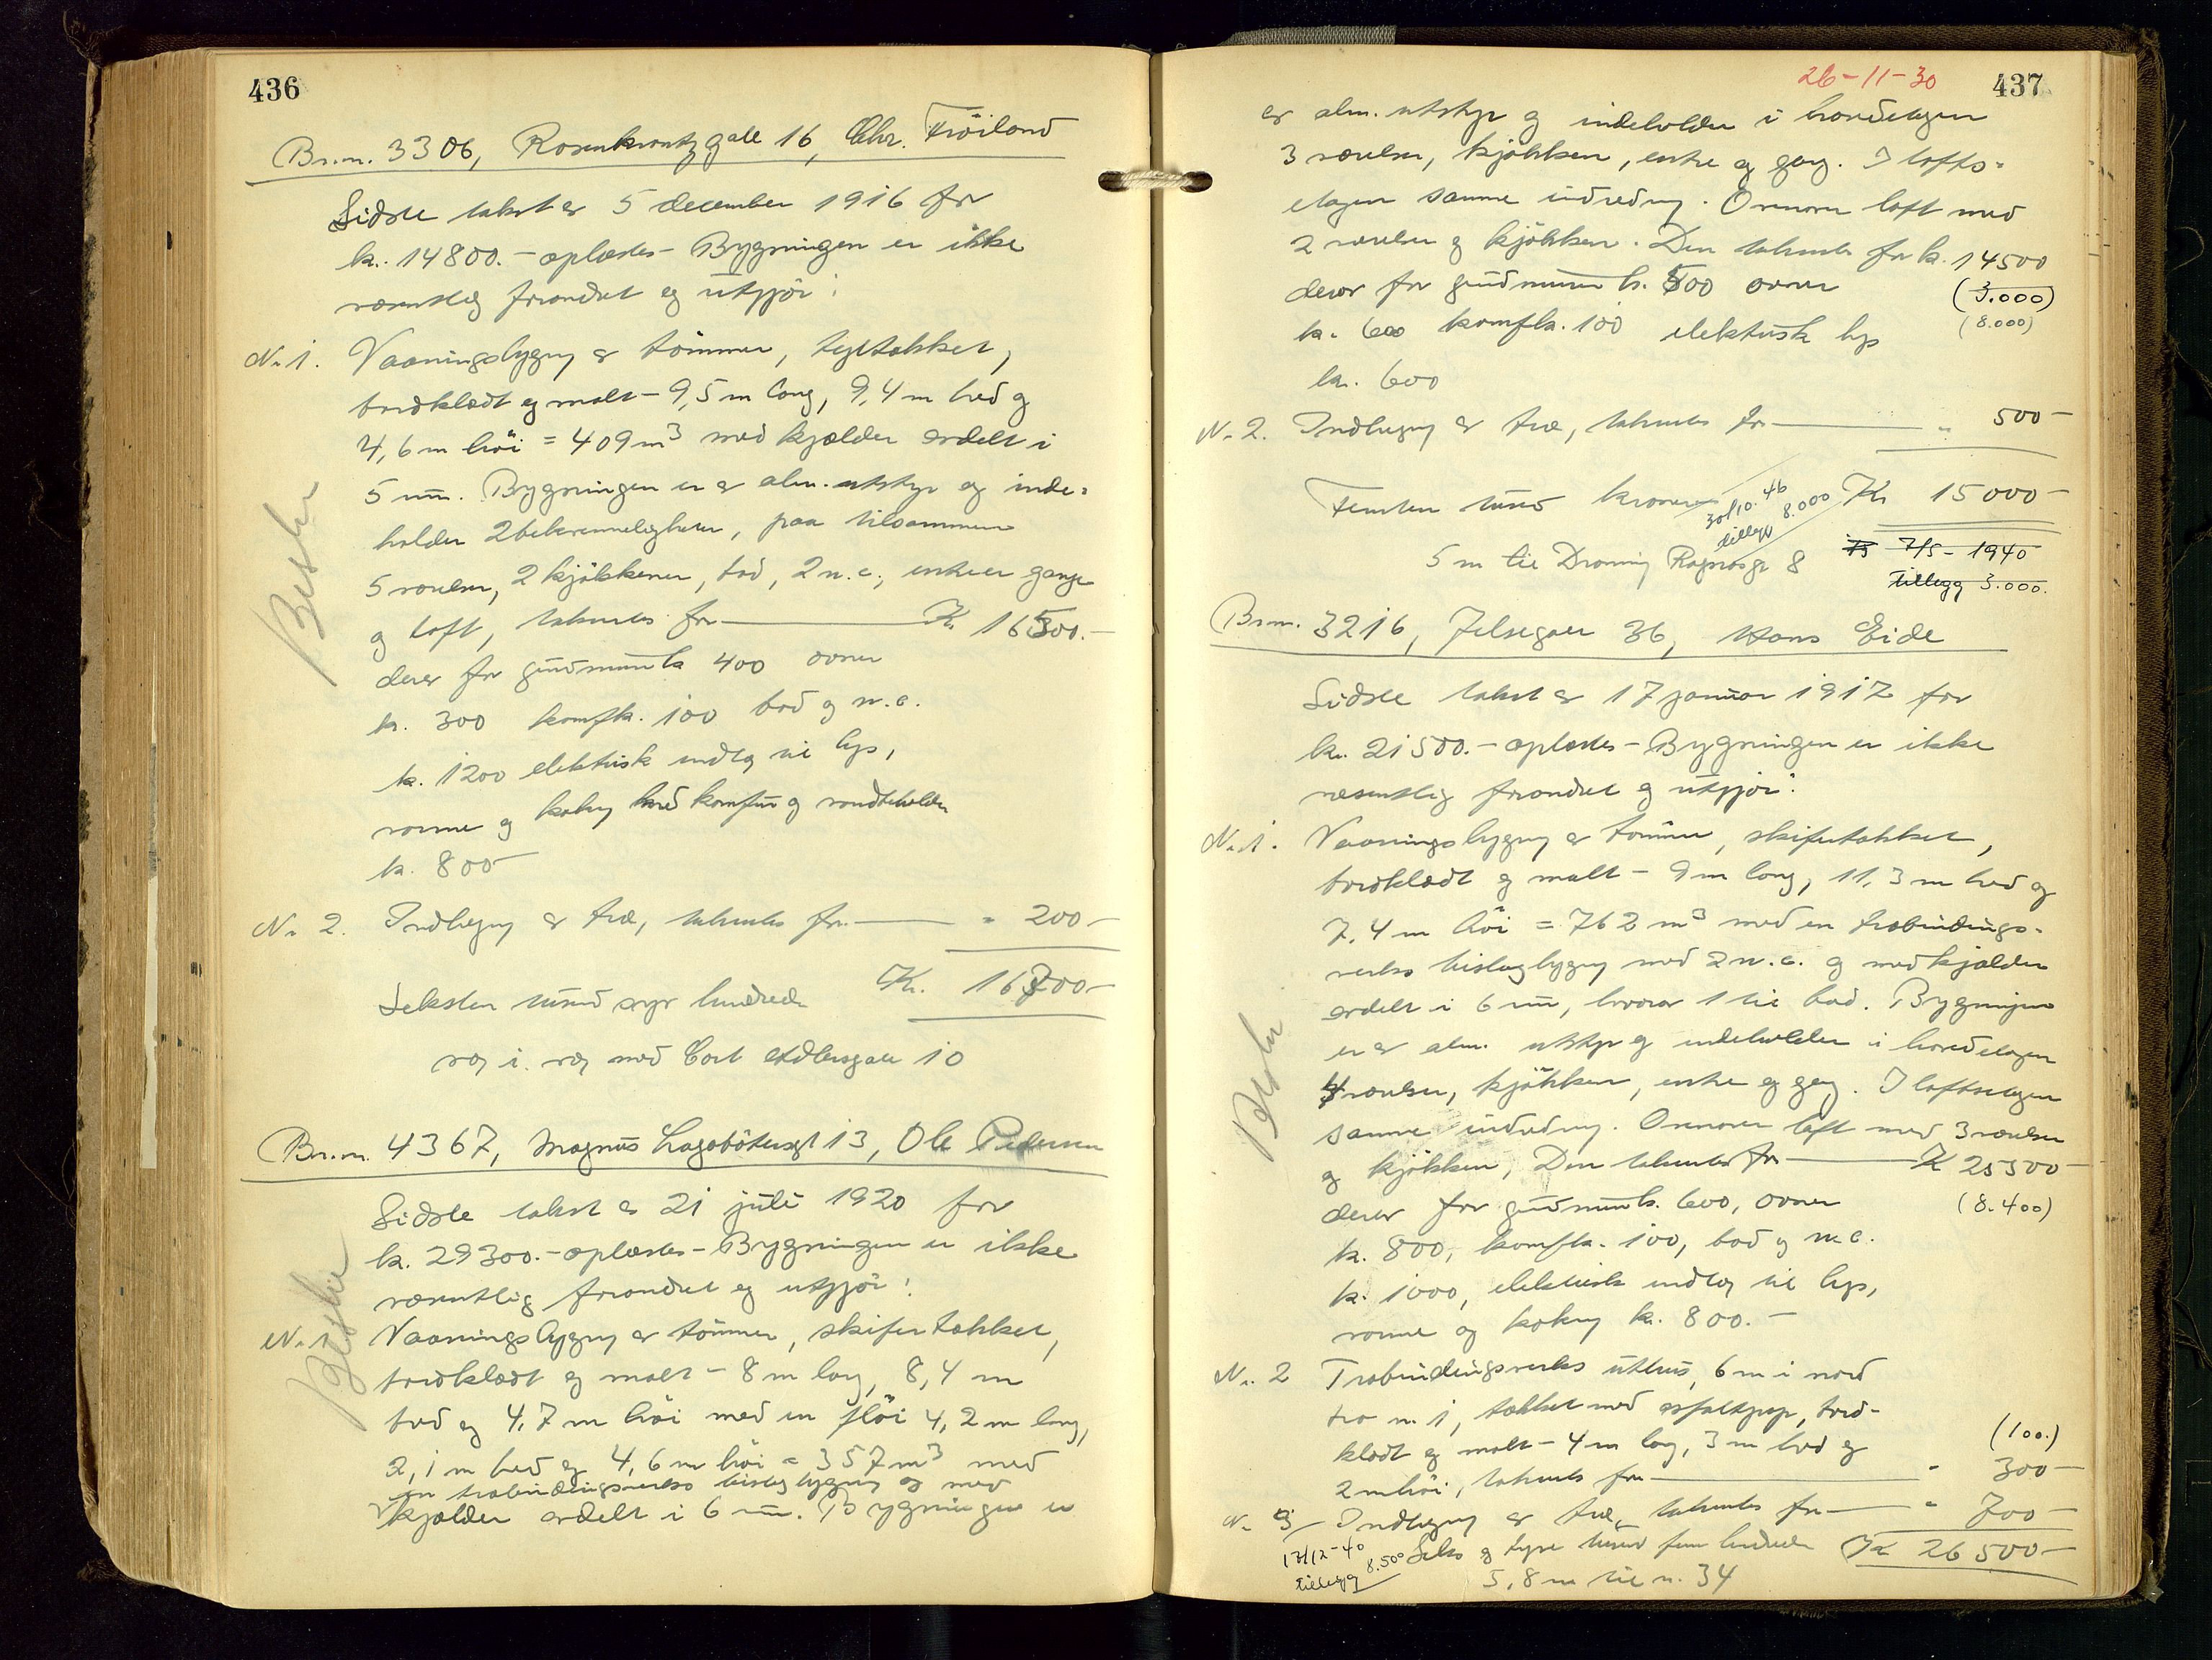 436
Br.nr. 3306, Rosenkrantzgate 16, Chr. Fröiland
Sidste takst er 5 december 1916 for
kr. 14800.- oplæstes - Bygningen er ikke
væsentlig forandret og utgjör:
Nr. 1. Vaaningsbygng av tömmer, tegltækket,
bordklædt og malt - 9,5 m lang, 9,4 m bred og
4,6 m höi = 409 m³ med kjælder avdelt i
5 rum. Bygningen er av alm. utstyr og inde-
holder 2 bekvemmeligheter, paa tilsammen
5 værelser, 2 kjökkener, bad, 2 w.c., entreer gange
og loft, takseres for Kr. 16500.-
derav for grundmur kr. 400 ovner
kr. 300 komf. kr. 100 bad og w.c.
kr. 1200 elektrisk indlæg til lys,
varme og kokng med komfur og vandbeholder
kr. 800-
Nr. 2. Indhegng av træ, takseres for " 200-
Seksten tusind syv hundrede Kr. 16700-
væg i væg med Cort Adlersgate 10
Br.nr. 4367, Magnus Lagabötersgt 13, Ole Pedersen
Sidste takst er 21 juli 1920 for
kr. 29300.- oplæstes - Bygningen er ikke
væsentlig forandret og utgjör:
Nr. 1 Vaaningsbygng av tömmer, skifertækket,
bordklædt og malt - 8 m lang, 8,4 m
bred og 4,7 m höi med en flöi 4,2 m lang,
2,1 m bred og 4,6 m höi = 357 m³ med
en træbindingsverks bislagbygng og med
kjælder avdelt i 6 rum. Bygningen er
26-11-30
437
av alm. utstyr og indeholder i hovedetagen
3 værelser, kjökken, entre og gang. I lofts-
etagen samme indredng. Ovenover loft med
2 værelser og kjökken. Den takseres for kr. 14500
derav for grundmuren kr. 500 ovner (3.000)
kr. 600 komf kr. 100 elektrisk lys (8.000)
kr. 600
Nr. 2. Indhegng av træ, takseres for " 500-
Femten tusind kroner Kr 15000-
30/10.46
tillegg 8.000
5 m til Dronning Ragnasgt 8 7/5 - 1940
tillegg 3.000.
Br.nr. 3216, Jelsegaten 36, Hans Eide
Sidste takst er 17 januar 1917 for
kr. 21500.- oplæstes - Bygningen er ikke
væsentlig forandret og utgjör:
Nr. 1. Vaaningsbygng av tömmer, skifertækket,
bordklædt og malt - 9 m lang, 11,3 m bred og
7,4 m höi = 762 m³ med en træbindings-
verks bislagbygng med 2 w.c. og med kjælder
avdelt i 6 rum, hvorav 1 til bad. Bygningen
er av alm. utstyr og indeholder i hovedetagen
4 værelser, kjökken, entre og gang. I loftsetagen
samme indredng. Ovenover loft med 3 værelser
og kjökken, Den takseres for Kr 25500-
derav for grundmur kr. 600, ovner (8.400)
kr. 800, komf kr. 100, bad og w.c.
kr. 1000, elektrisk indlæg til lys,
varme og kokng kr. 800.-
Nr. 2 Træbindingsverks uthus, 6 m i nord
fra nr. 1, tækket med asfaltpap, bord-
klædt og malt - 4 m lang, 3 m bred og (100.)
2 m höi, takseres for " 300-
Nr. 3 Indhegng av træ, takseres for " 700-
Seks og tyve tusind fem hundrede Kr 26500-
13/12-40
tillegg 8.500
5,8 m til nr. 34